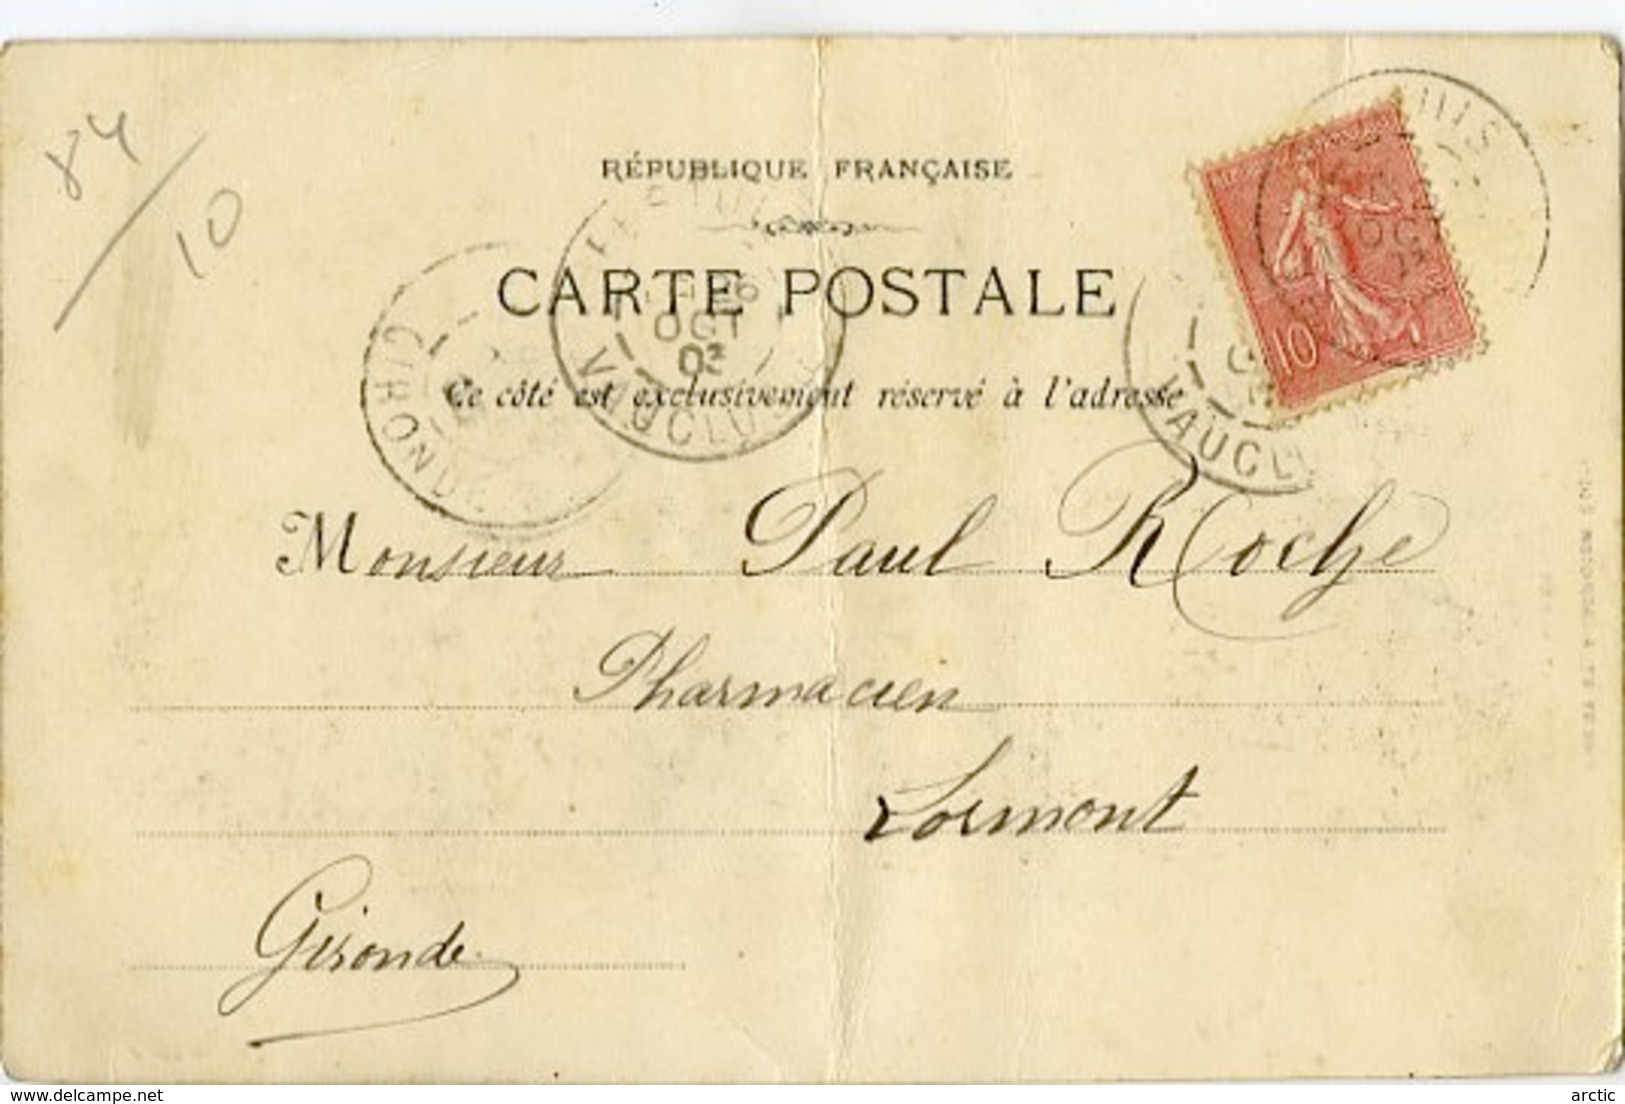 84/10
RÉPUBLIQUE FRANÇAISE
CARTE POSTALE
Ce côté est exclusivement réservé à l'adresse
OCT
VAUCLU
GIROND
VAUCL
OC
10
Monsieur Paul Roche
Pharmacien
Lormont
Gironde
arctic